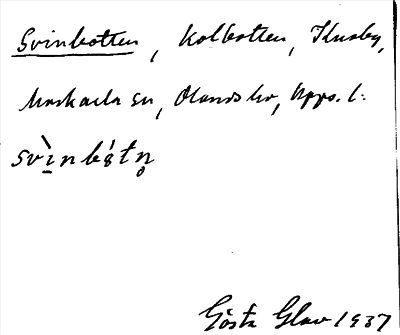 Svinbotten, Kolbotten, Husby,
Morkarla sn, Olands hd, Upps. l.
svìnbótn̥
Gösta Glav 1937